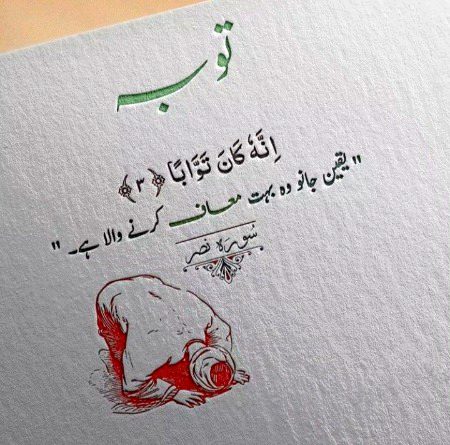 توبہ
اِنَّهٗ كَانَ تَوَّابًا ﴿٣﴾
"یقین جانو وہ بہت معاف کرنے والا ہے۔"
سُورۃ نصر